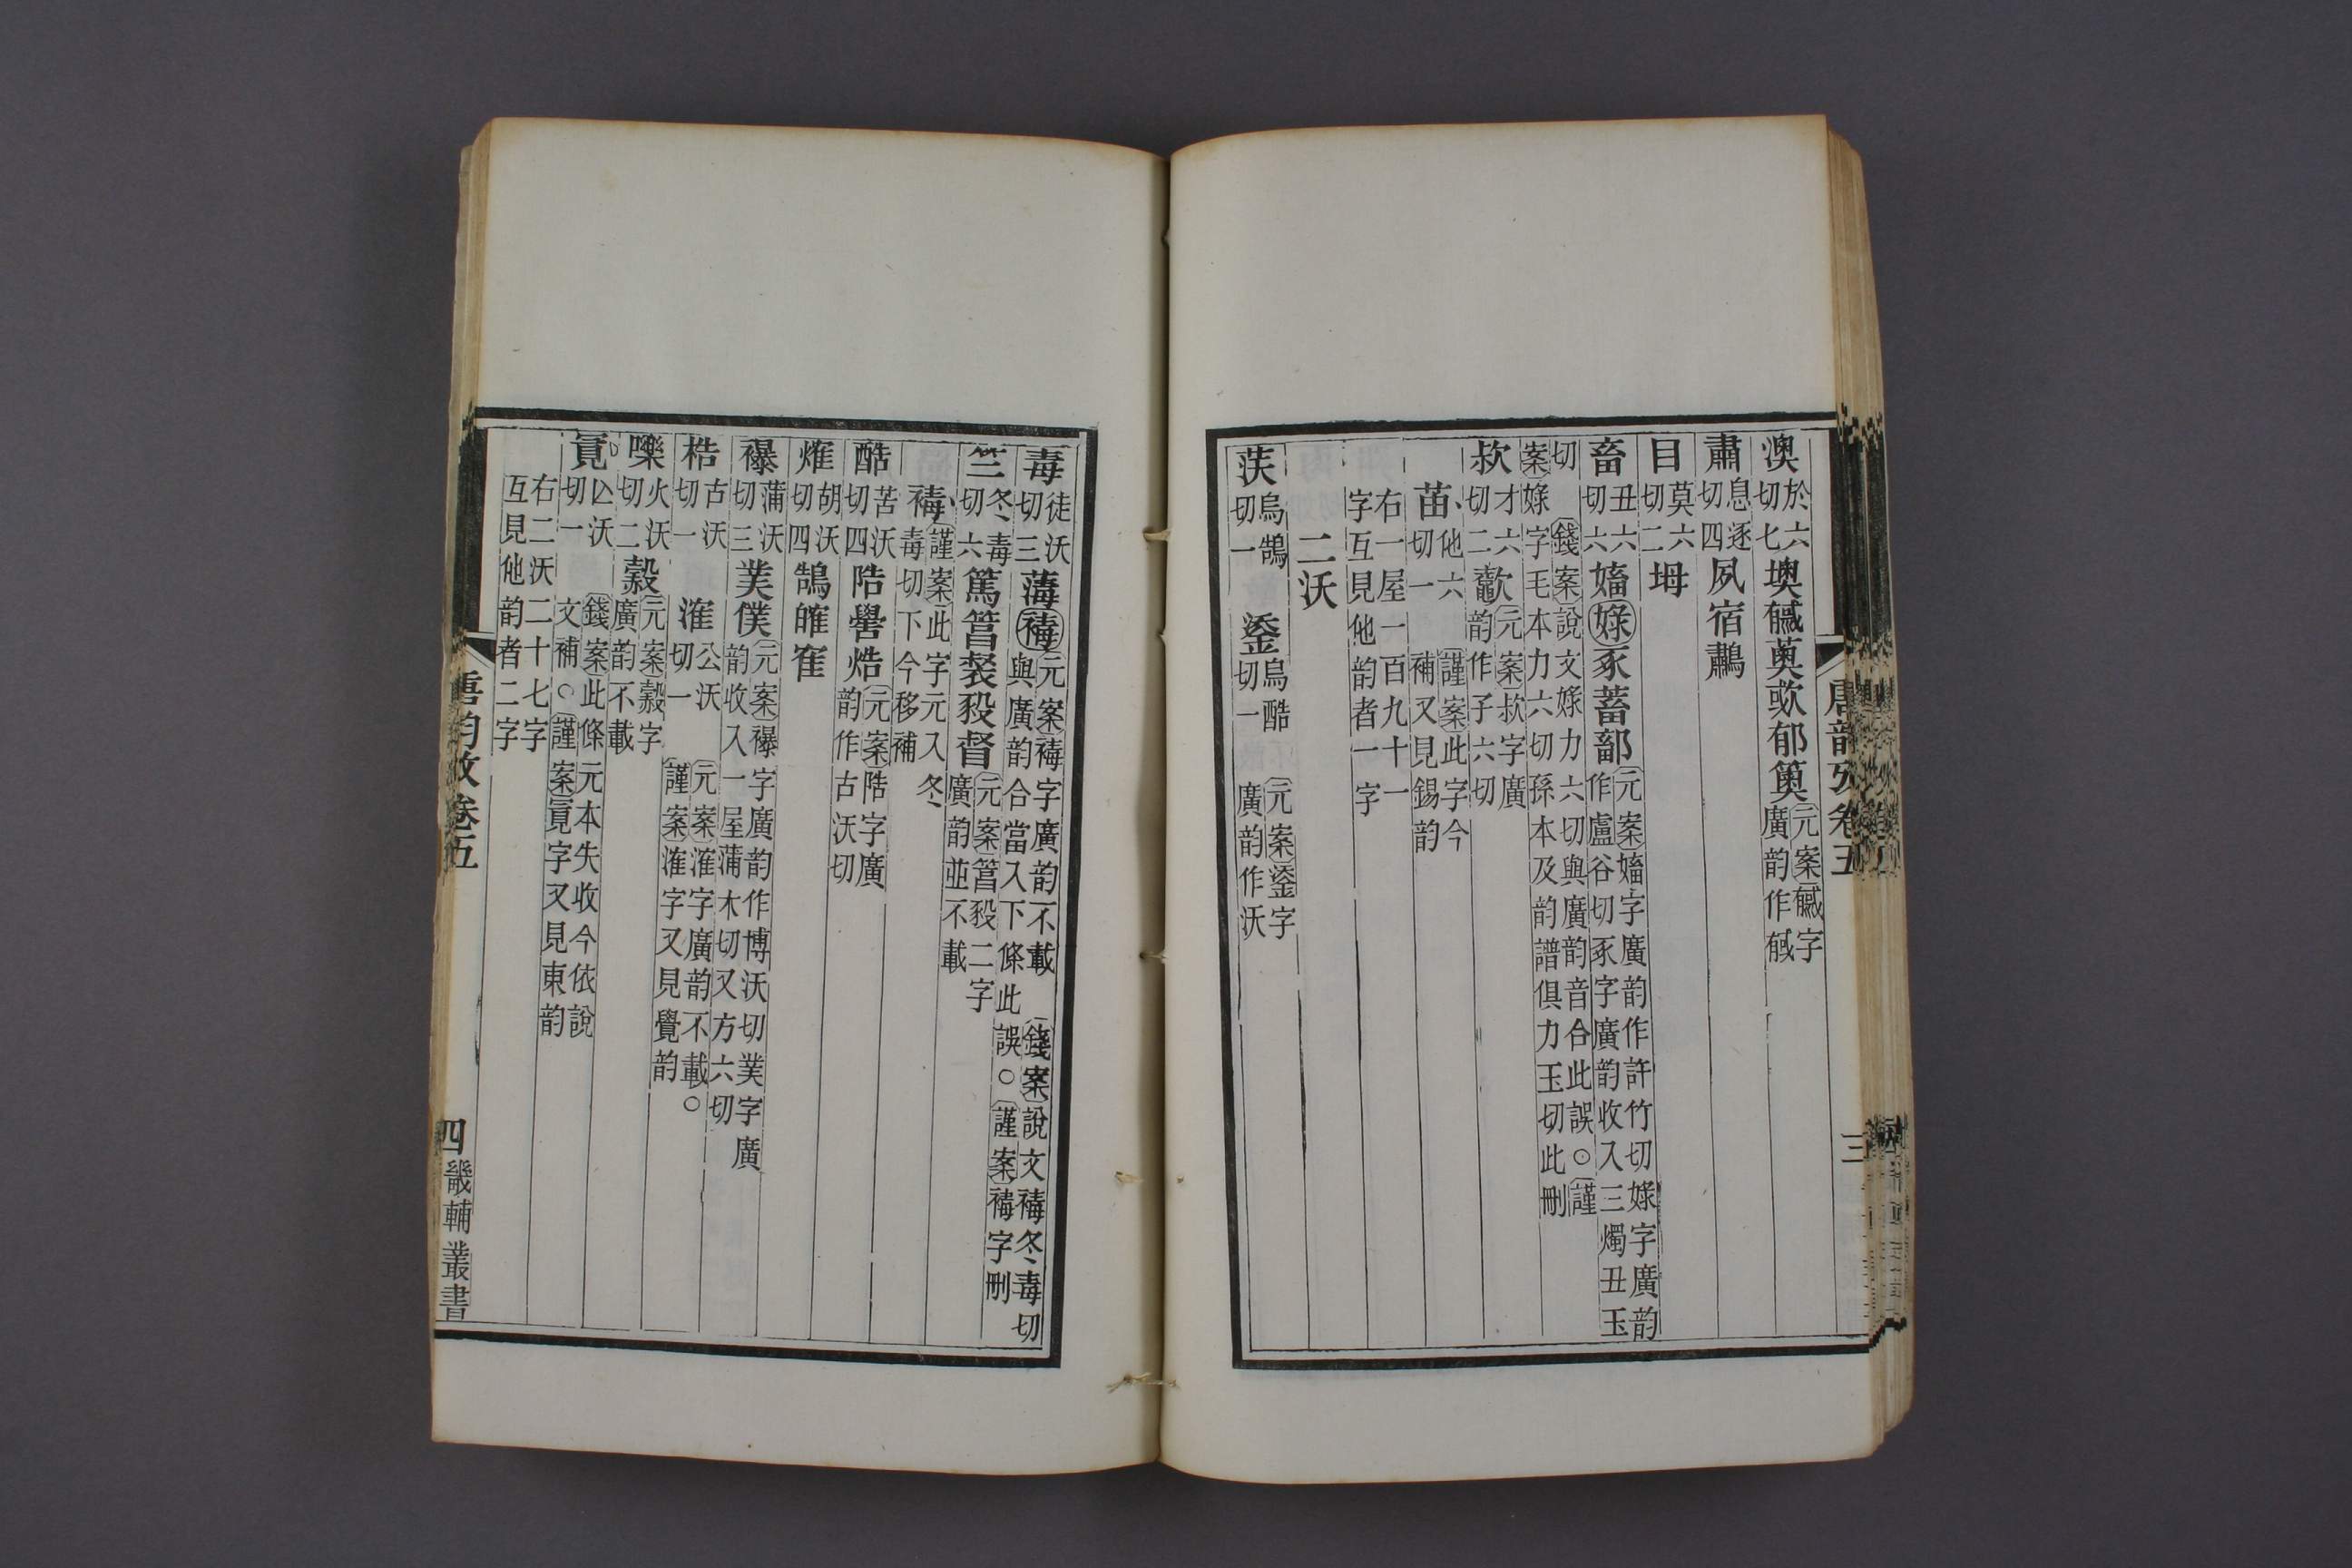 唐韵攷卷五
三
澳於六切七墺䤋薁郁𥴧元案䤋字廣韵作
肅息逐切四夙宿鷫
目莫六切二坶
畜丑六切六媨豕蓄鄐元案媨字廣韵作許竹切娽字廣韵作盧谷切豕字廣韵收入三燭丑玉
切錢案說文娽力六切與廣韵音合此誤○謹案娽字毛本力六切孫本及韵譜俱力玉切此刪
敊才六切二元案敊字廣韵作子六切
苗他六切一謹案此字今補又見錫韵
右一屋一百九十一字互見他韵者一字
二沃
芺烏鵠切一鋈烏酷切一元案鋈字廣韵作沃
毒徒沃切三䓯禱元案禱字廣韵不載與廣韵合當入下條此誤錢案說文禱冬毒切○謹案禱字刪
竺冬毒切六篤䈞裻督元案䈞二字廣韵並不載
禱謹案此字元入冬毒切下今移補
酷苦沃切四陪嚳焅元案陪字廣韵作古沃切
熇胡沃切四鵠㿥
襮蒲沃切三僕元案襮字廣韵作博沃切字廣韵收入一屋蒲木切又方六切
梏古沃切一 㴶公沃切一元案㴶字廣韵不載○謹案㴶字又見覺韵
嚛火沃切二元案字廣韵不載
沃切一錢案此條元本失收今依說文補○謹案字又見東韵
右二沃二十七字互見他韵者二字
唐韵攷卷五
四
畿輔叢書